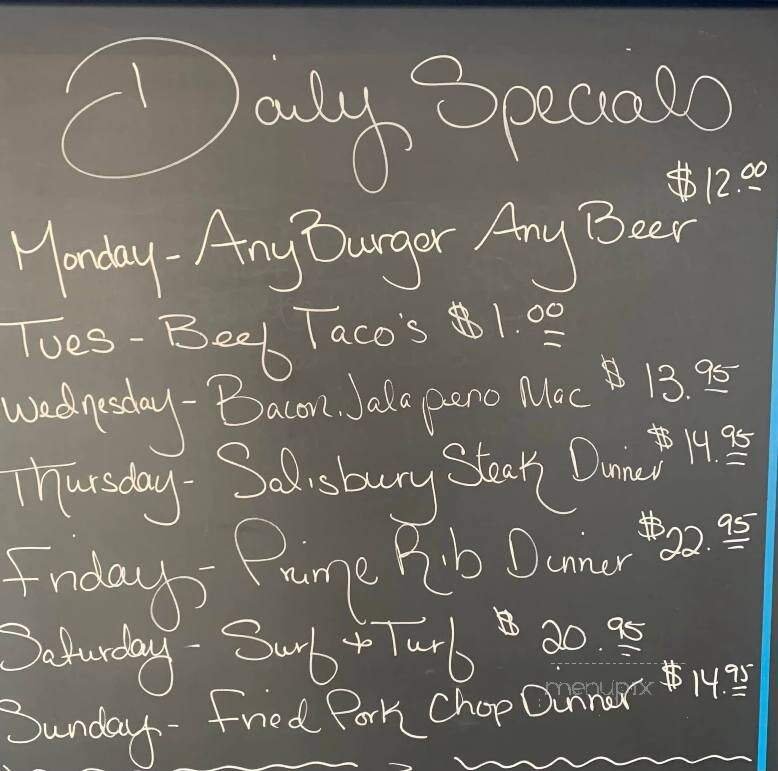 Daily Specials
Monday - Any Burger Any Beer $12.00
Tues - Beef Taco's $1.00
Wednesday - Bacon Jalapeno Mac $13.95
Thursday - Salisbury Steak Dinner $14.95
Friday - Prime Rib Dinner $22.95
Saturday - Surf + Turf $20.95
Sunday - Fried Pork Chop Dinner $14.95
menupix